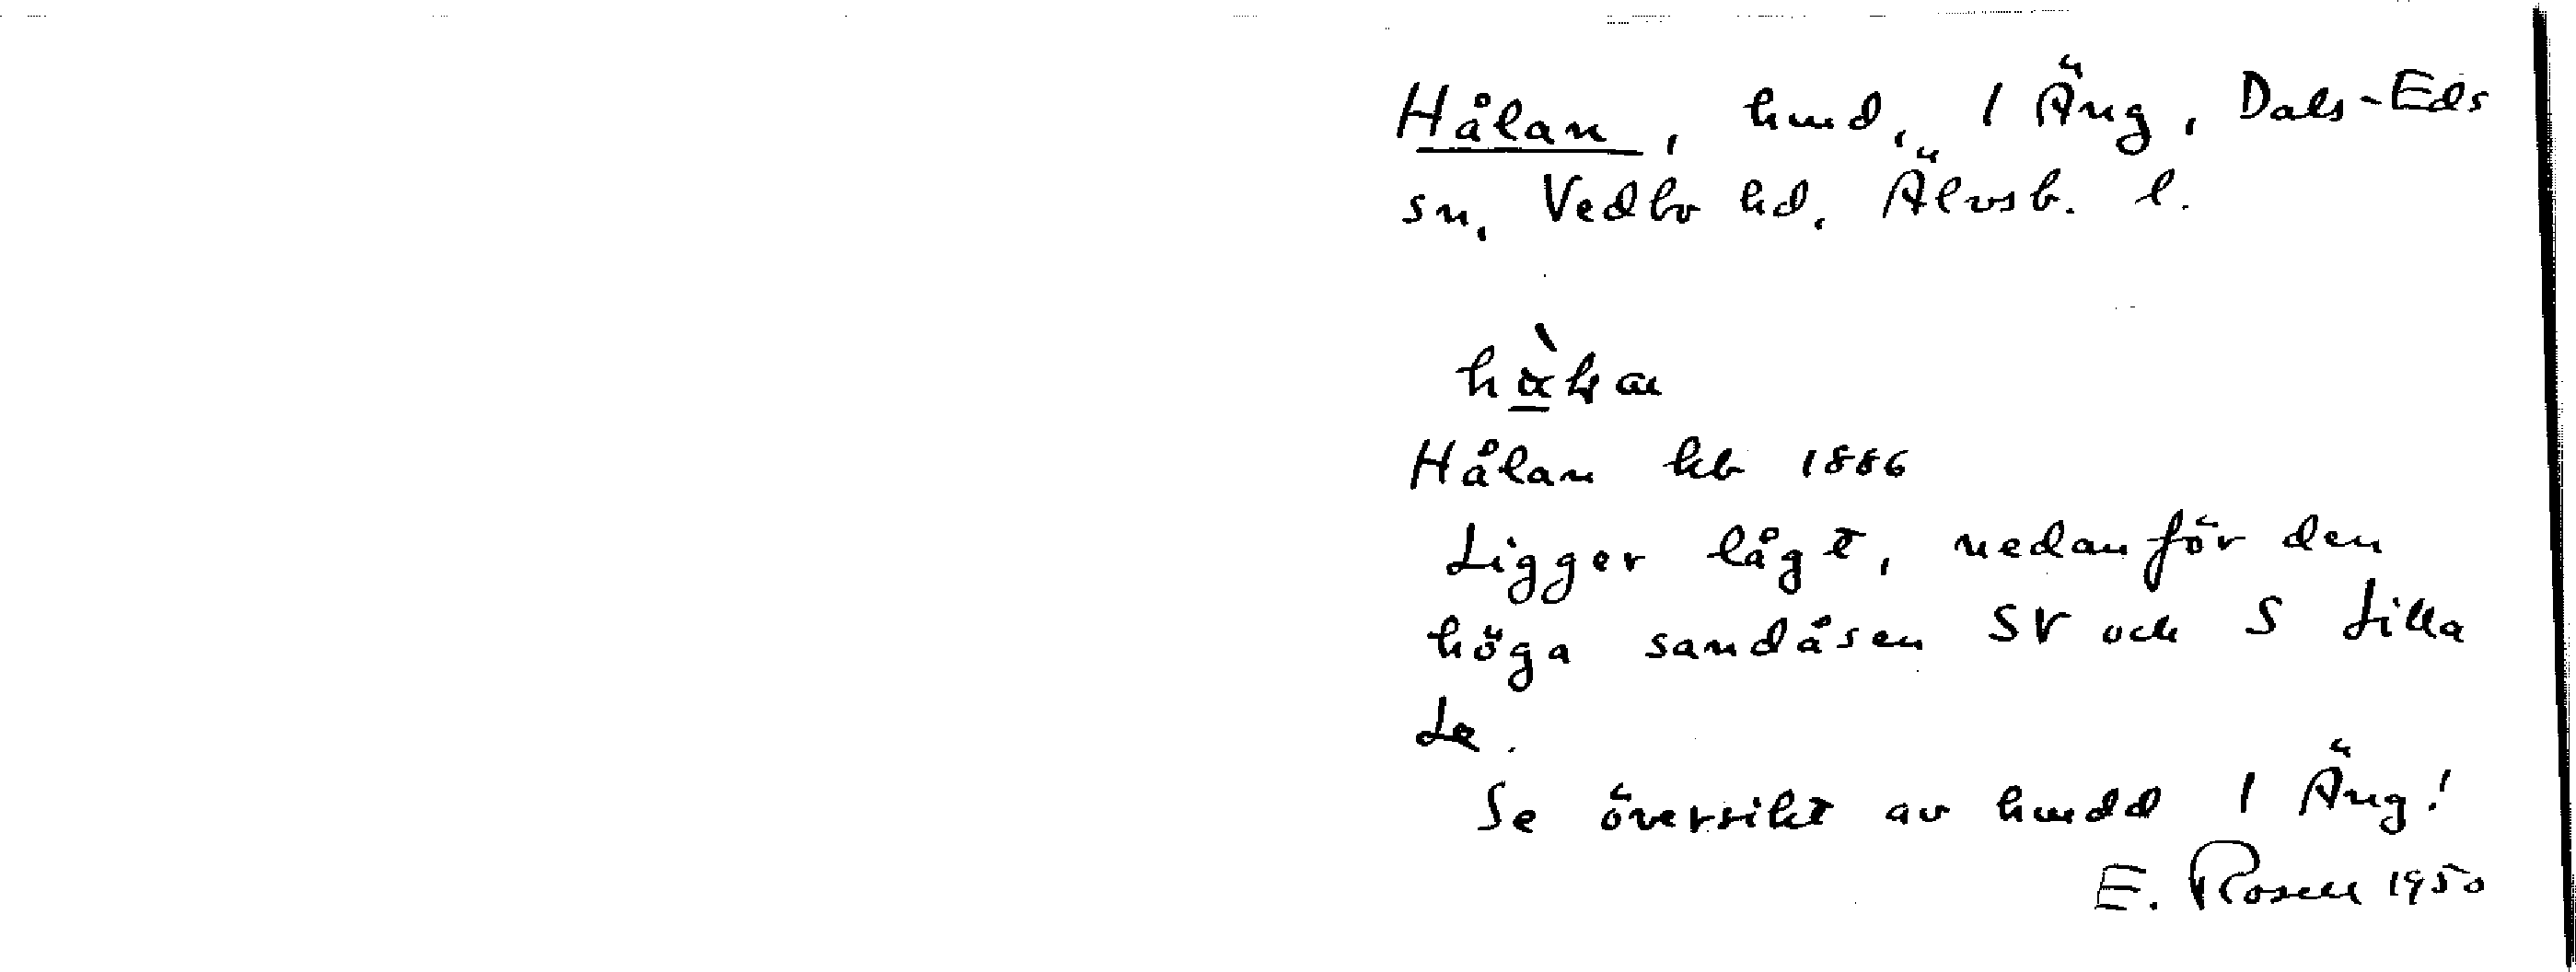 Hålan, hmd, 1 Äng, Dals-Eds
sn, Vedbo hd, Älvsb. l.
Hålan kb 1886
Ligger lågt, nedanför den
höga sandåsen SV och S Lilla
Le.
Se översikt av hmdd 1 Äng!
E. Rosell 1950